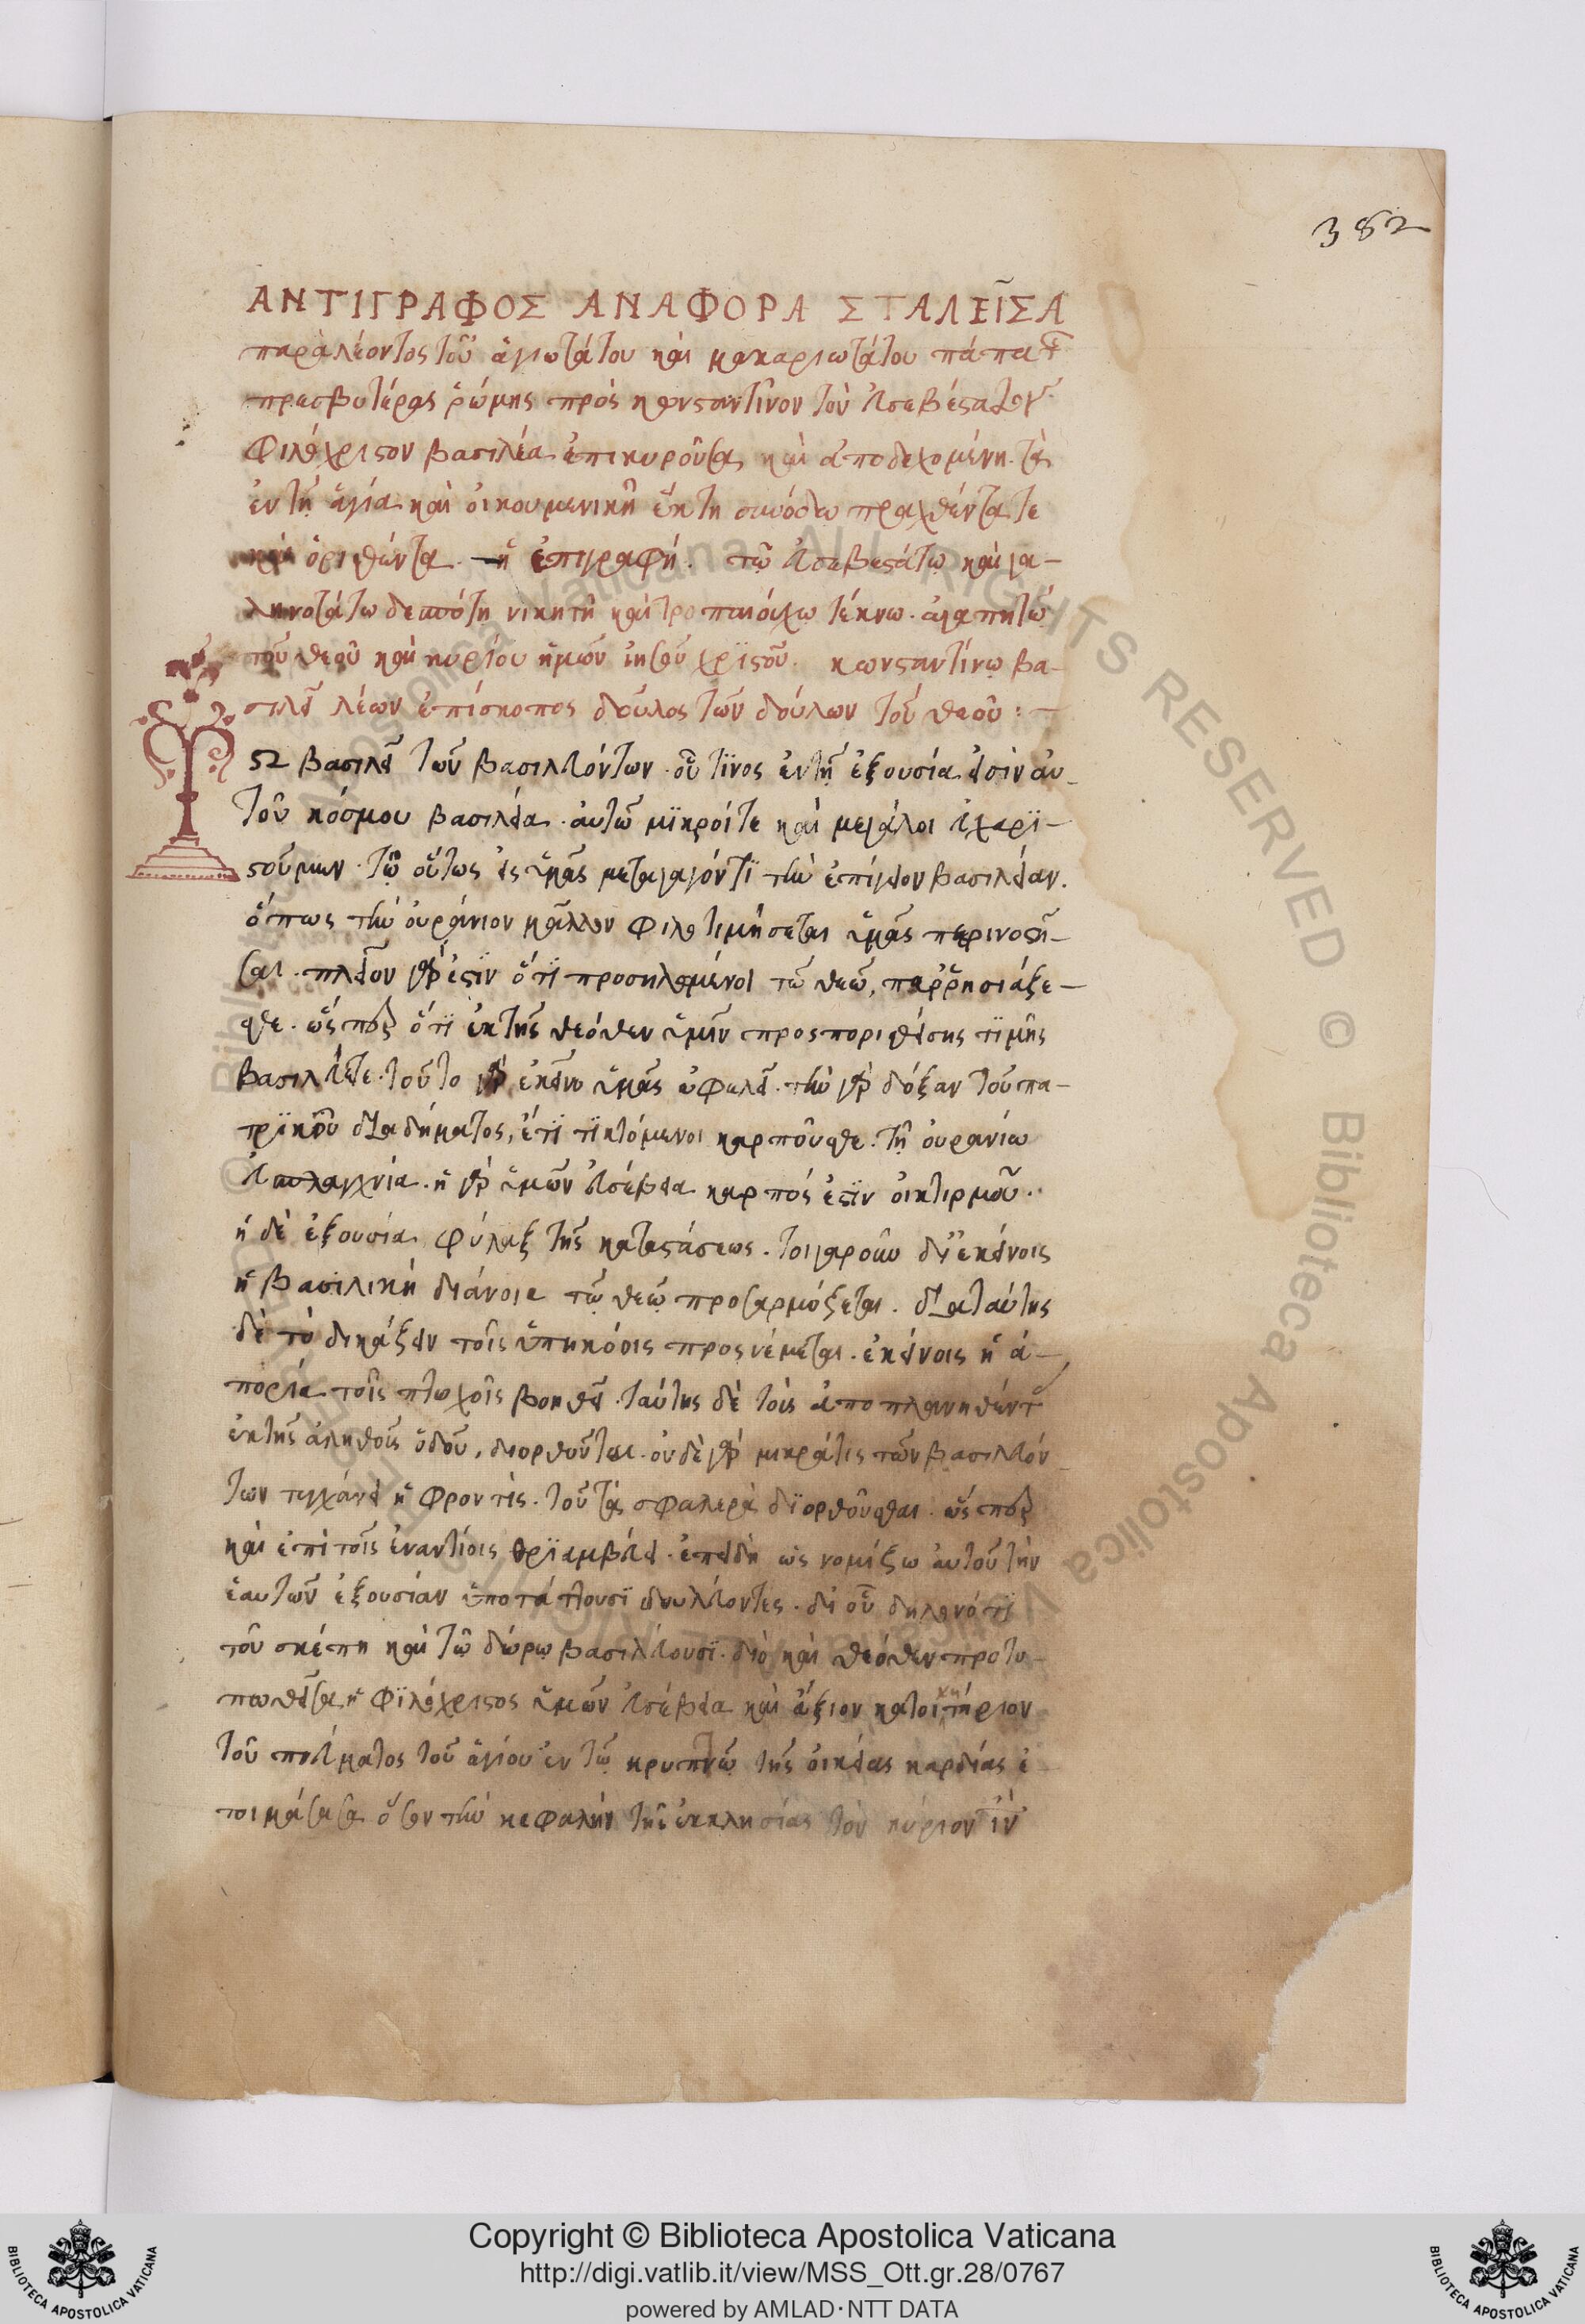 382
ΑΝΤΙΓΡΑΦΟΣ ΑΝΑΦΟΡΑ ΣΤΑΛΕῖΣΑ
παρὰ λέοντος τοῦ ἁγιωτάτου καὶ μακαριωτάτου πάπα τῆς
πρεσβυτέρας ῥώμης πρὸς κωνσταντῖνον τὸν εὐσεβέστατον
φιλόχριστον βασιλέα ἐπικυροῦσα καὶ ἀποδεχομένη τὰ
ἐν τῇ ἁγία καὶ οἰκουμενικῆ ἕκτη συνόδω πραχθέντα τε
καὶ ὁρισθέντα. ἡ ἐπιγραφή. τῷ εὐσεβεστάτῳ καὶ γα-
ληνοτάτω δεσπότη νικητῆ καὶ τροπαιούχω τέκνω. ἀγαπητῶ
τοῦ θεοῦ καὶ κυρίου ἡμῶν ἰησοῦ χριστοῦ. κωνσταντίνῳ βα-
σιλεῖ λέων ἐπίσκοπος δοῦλος τῶν δούλων τοῦ θεοῦ:
Τῶ βασιλεῖ τῶν βασιλευόντων. οὗ τινος ἐν τῇ ἐξουσία εἰσὶν αὐ
τοῦ κόσμου βασιλεία. αὐτῶ μικροί τε καὶ μεγάλοι εὐχαρι-
στοῦμεν. τῷ οὕτως εἰς ὑμᾶς μεταγαγόντι τὴν ἐπίγειον βασιλείαν.
ὅπως τὴν οὐράνιον μᾶλλον φιλοτιμήσεται ὑμᾶς περινοῆ-
σαι. πλεῖον γάρ ἐστιν ὅτι προσηλωμένοι τῶ θεῶ, παῤῥησιάζε-
σθε. ὥσπερ ὅτι ἐκ τῆς θεόθεν ὑμῖν προσπορισθείσης τιμῆς
βασιλεύετε. τοῦτο γὰρ ἐκεῖνο ὑμᾶς ὠφελεῖ. τὴν γὰρ δόξαν τοῦ πα-
τρικοῦ διαδήματος, ἔτι τικτόμενοι καρποῦσθε. τῆ οὐρανίω
εὐσπλαγχνία. ἡ γὰρ ὑμῶν εὐσέβεια καρπός ἐστιν οἰκτιρμοῦ.
ἡ δὲ ἐξουσία φύλαξ τῆς καταστάσεως. τοιγαροῦν δι' ἐκείνοις
ἡ βασιλικὴ διάνοια τῷ θεῷ προσαρμόζεται. διὰ ταύτης
δὲ τὸ δικάζειν τοῖς ὑπηκόοις προσνέμεται. ἐκείνοις ἡ ἀ-
πορία τοῖς πτωχοῖς βοηθεῖ. ταύτης δὲ τοῖς ἀποπλανηθέντ
ἐκ τῆς ἀληθοῦς ὁδοῦ, διορθοῦται. οὐδὲ γὰρ μικρά τις τῶν βασιλευόν
των τυγχάνει ἡ φροντὶς. τοῦ τὰ σφαλερὰ διορθοῦσθαι. ὥσπερ
καὶ ἐπὶ τοῖς ἐναντίοις θριαμβεύει. ἐπειδὴ ὡς νομίζω αὐτοῦ τὴν
ἑαυτῶν ἐξουσίαν ὑποτάττουσι δουλεύοντες. δι' οὗ δηλονότι
τοῦ σκέπη καὶ τῶ δώρῳ βασιλεύουσι. διὸ καὶ θεόθεν προτυ-
πωθεῖσα ἡ φιλόχριστος ὑμῶν εὐσέβεια καὶ ἄξιον κατοικητήριον
τοῦ πνεύματος τοῦ ἁγίου ἐν τῷ κρυπτῷ τῆς οἰκείας καρδίας ἑ
τοιμάσασα ὅσον τὴν κεφαλὴν τῆς ἐκκλησίας τὸν κύριον ἰν